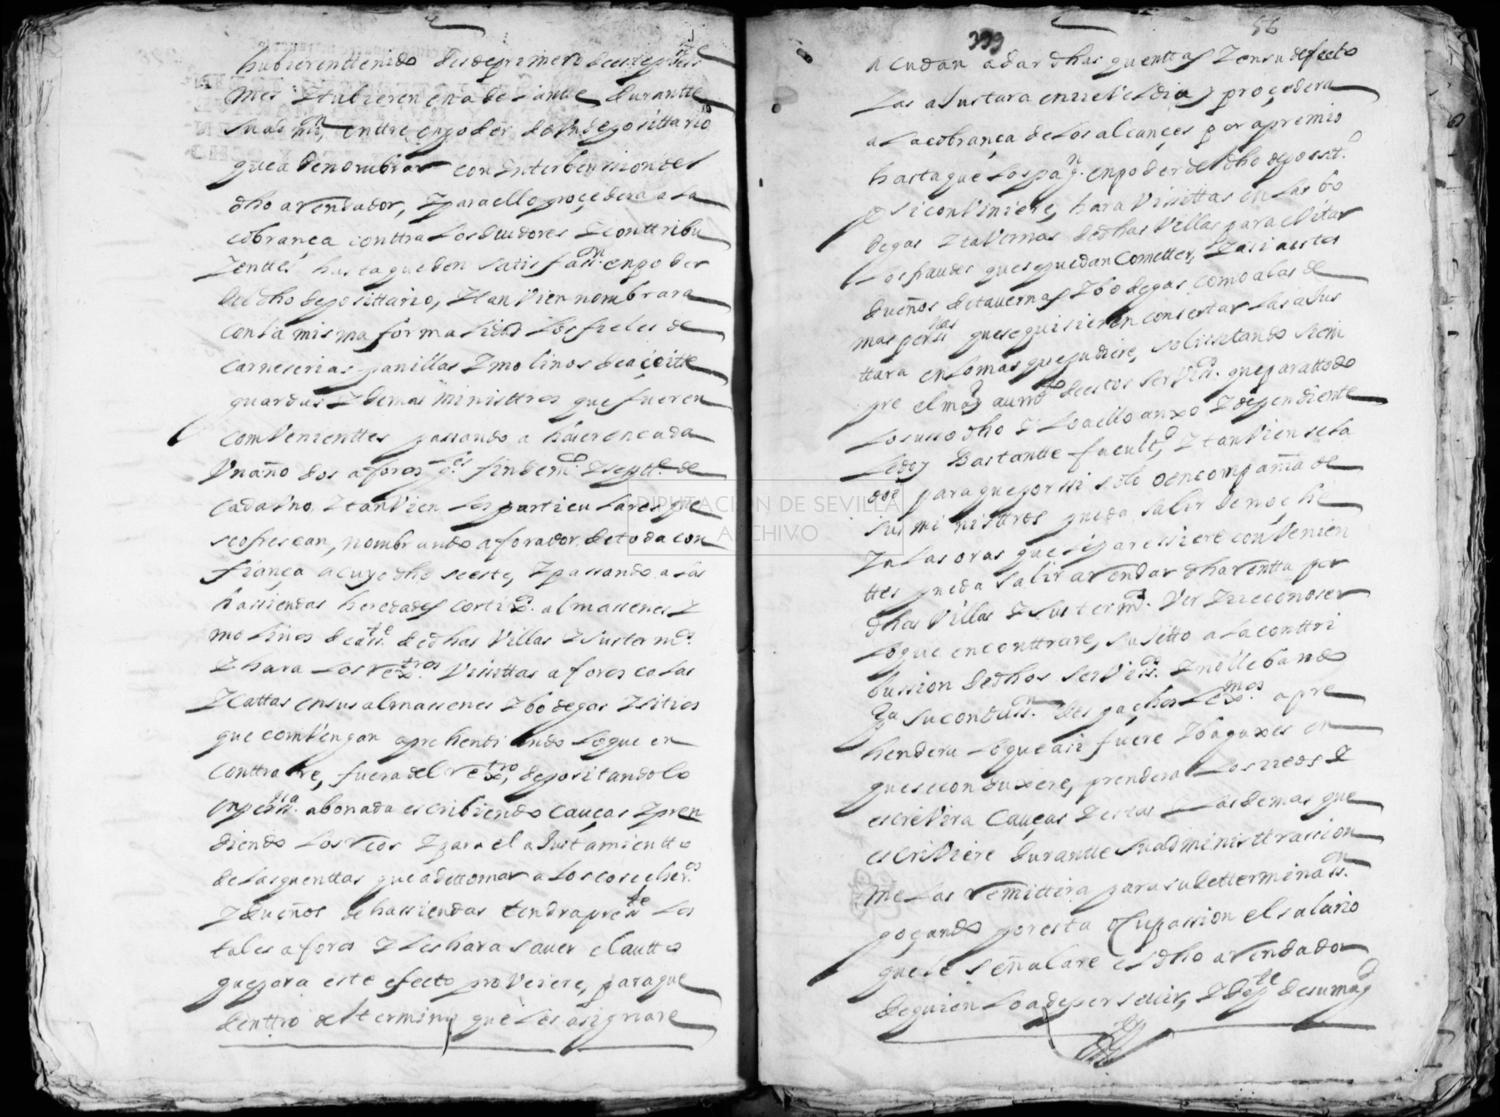 hubieren ttenido desde primero de este press.te
mes Y tubieren en adelante Durantte
su adm.on, entre en poder de Un deposittario
que a de nombrar con Ynterbension del
dho arendador, Y para ello procedera a la
cobranca conttra los Deudores Y conttribu
Yenttes hasta queden satisfass.on en poder
del dho deposittario, Y tan Vien nombrara
con la misma formalidad los fieles de
carneserias panillas Y molinos de aceitte
guardas Y demas ministtros que fueren
comVenienttes passando a hacer en cada
Un año dos aforos fin de m.o Y sepp.e de
cada Uno Y tanVien los particulares que
se ofrescan, nombrando aforador de toda con
fianca a cuyo dho se este, Y passando a las
hassiendas heredades cortixos almassenes Y
molinos de de dhas Villas Y sus term.os
Y hara los rex.tros Visittas aforos calas
Y cattas en sus almassenes Y bodegas Y sitios
que combengan aprehendiendo lo que en
conttrare, fuera del rex.tro, depositandolo
en perss.na abonada escribiendo caucas Y pren
diendo los reos Y para el aJustamientto
de las quenttas que a de ttomar a los cosecher.os
Y dueños de hassiendas tendra press.te los
tales aforos Y les hara saver el autto
que para este efecto proVeiere, para que
denttro del termino que les asignare
393
56
acudan a dar dhas quenttas Y en su defecto
las aJustara en reveldia Y procedera
a la cobranca de los alcances por apremio
hasta que los pag.n en poder del dho deposit.o
Y si conViniere, hara Visittas en las bo
degas Y taVernas de dhas Villas para eVitar
los fraudes que se puedan Cometter, Y assi a estos
dueños de tavernas Y bodegas como a las de
mas perss.nas que se quisieren consertar las aJus
ttara en lo mas que pudiere, solissitando siem
pre el mayor aum.to de estos serViss.os que para ttodo
lo susso dho Y lo a ello anxo Y dependiente
le doy Bastantte facult.d Y tanVien se la
doy para que por si solo o en compañia de
sus ministtros pueda salir de noche
Y a las oras que le paressiere conVenien
ttes pueda salir a rendar dha rentta por
dhas Villas Y sus term.os Ver Y reconoser
lo que encontrare, sujetto a la conttri
bussion de dhos serViss.os Y no llebando
p.a su conduss.on despachos lex.mos apre
hendera lo que assi fuere Y bagaxes en
que se conduxere, prendera los reos Y
escreVira Caucas Y estas Y las demas que
escriViere Durantte su administtrassion
me las remittira para su detterminass.on
gogando por esta ocupassion el salario
que le señalare el dho arendador
de quien lo a de persevir, Y de p.te de su mag.d